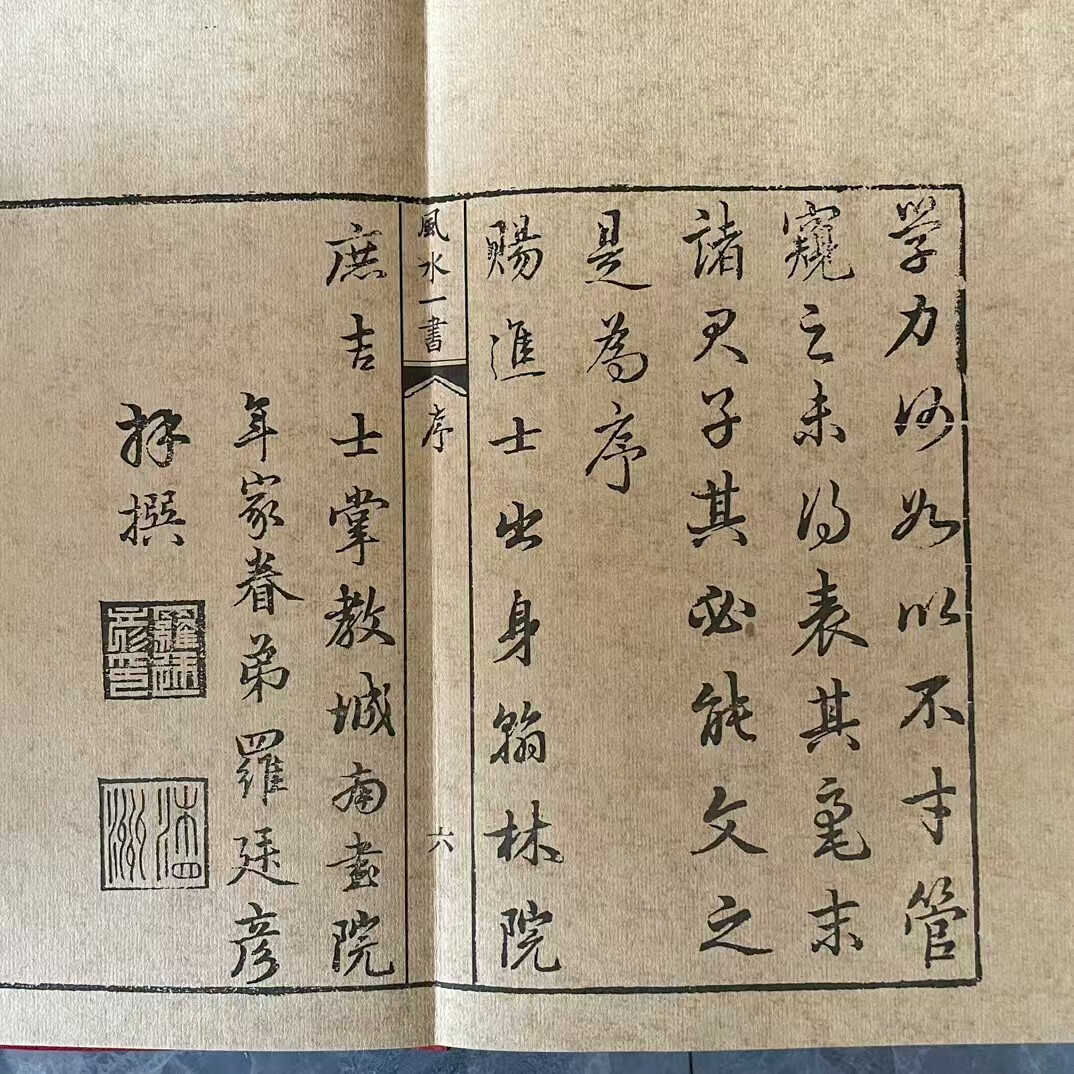 学力何如以不才管
窺之未得表其毫末
諸君子其必能文之
是為序
賜進士出身翰林院
風水一書 序 六
庶吉士掌教城南書院
年家眷弟羅廷彥
拜撰
羅廷彥印